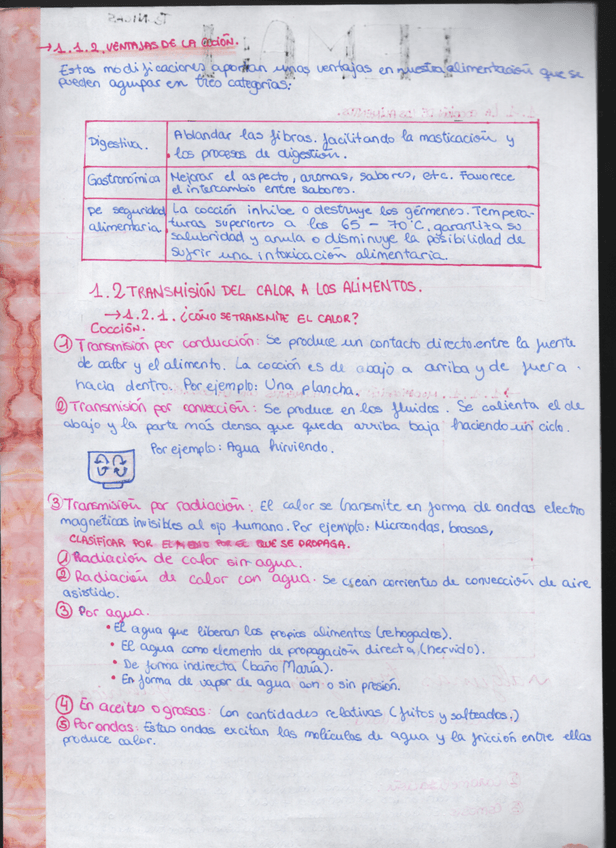 → 1.1.2. VENTAJAS DE LA COCIÓN.
Estas modificaciones aportan unas ventajas en nuestra alimentación que se
pueden agrupar en tres categorías:
Digestiva.
Ablandar las fibras. facilitando la masticación y
los procesos de digestión.
Gastronómica
Mejorar el aspecto, aromas, sabores, etc. Favorece
el intercambio entre sabores.
De seguridad
alimentaria.
La cocción inhibe o destruye los gérmenes. Tempera-
turas superiores a los 65 - 70°C. garantiza su
salubridad y anula o disminuye la posibilidad de
sufrir una intoxicación alimentaria.
1.2 TRANSMISIÓN DEL CALOR A LOS ALIMENTOS.
→ 1.2.1. ¿CÓMO SE TRANSMITE EL CALOR?
Cocción.
① Transmisión por conducción: Se produce un contacto directo entre la fuente
de calor y el alimento. La cocción es de abajo a arriba y de fuera
hacia dentro. Por ejemplo: Una plancha.
② Transmisión por convección: Se produce en los fluidos. Se calienta el de
abajo y la parte más densa que queda arriba baja haciendo un ciclo.
Por ejemplo: Agua hirviendo.
③ Transmisión por radiación: El calor se transmite en forma de ondas electro
magnéticas invisibles al ojo humano. Por ejemplo: Microondas, brasas,
CLASIFICAR POR EL MEDIO POR EL QUE SE PROPAGA.
① Radiación de calor sin agua.
② Radiación de calor con agua. Se crean corrientes de convección de aire
asistido.
③ Por agua.
• El agua que liberan los propios alimentos (rehogados).
• El agua como elemento de propagación directa, (hervido).
• De forma indirecta (baño María).
• En forma de vapor de agua con o sin presión.
④ En aceites o grasas: Con cantidades relativas (fritos y salteados.)
⑤ Por ondas: Estas ondas excitan las moléculas de agua y la fricción entre ellas
produce calor.